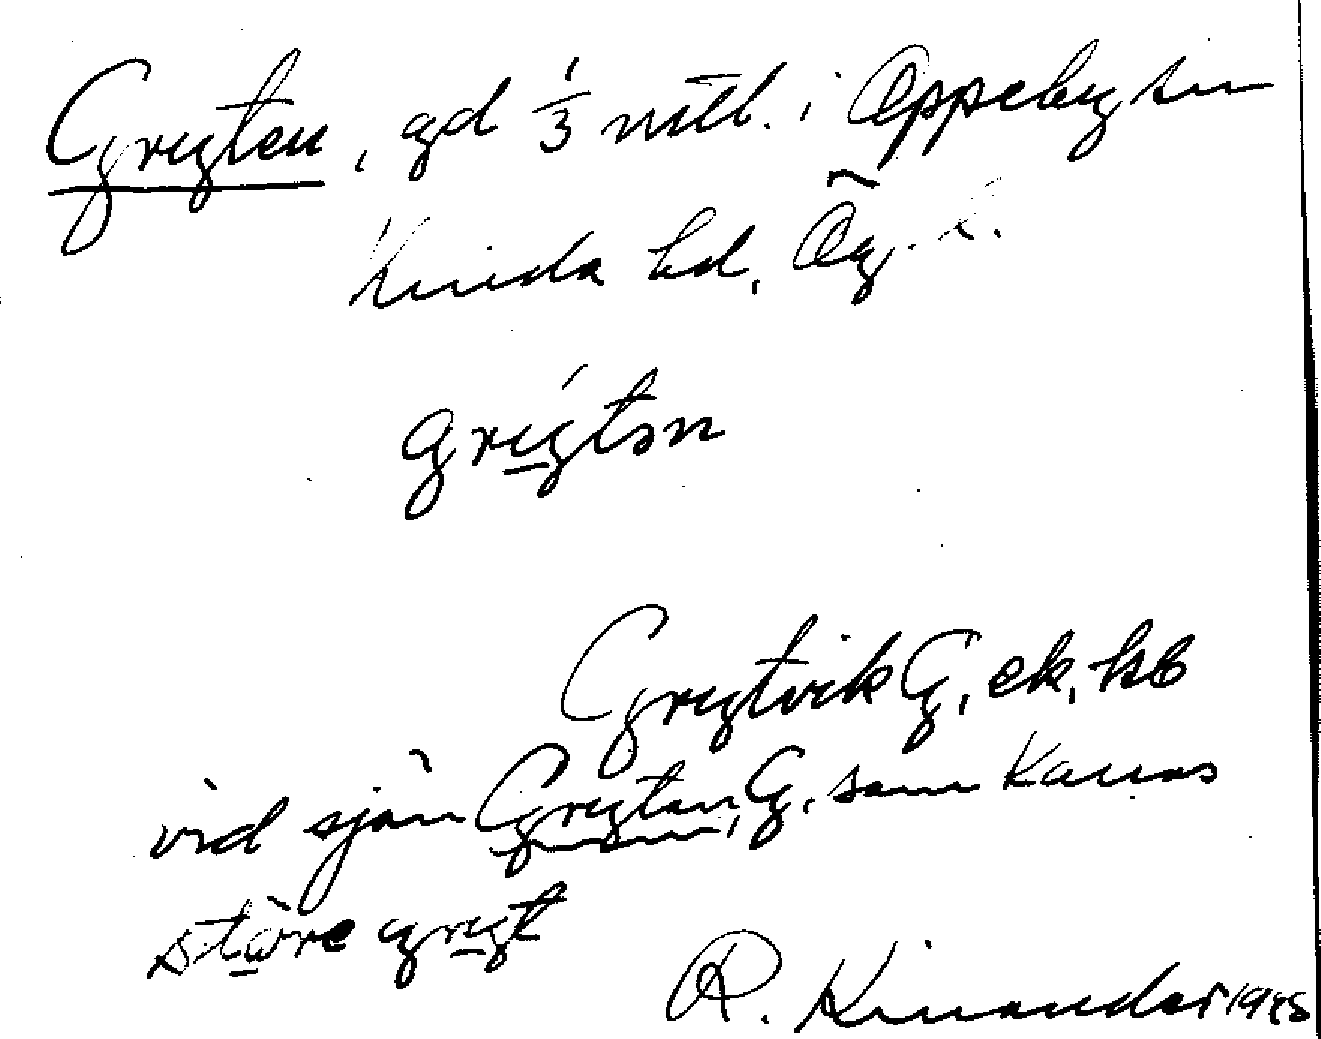 Gryten, gd 1/3 mtl. i Oppeby sn
Kinda hd, Ög. l.
gry̲tən
Grytvik G, ek, kb
vid sjön Grytan, G, som Kanas
stø̲re gry̲t
R. Kinander